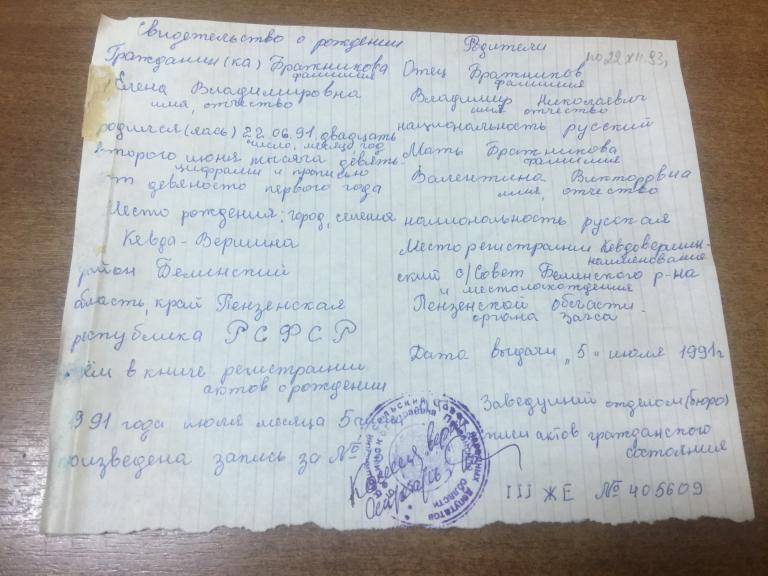 Свидетельство о рождении
Гражданин(ка) Бражникова
фамилия
Елена Владимировна
имя, отчество
родился(лась) 22.06.91 двадцать
число, месяц, год
второго июня тысяча девять
цифрами и прописью
от девяносто первого года
Место рождения: город, селения
Кевда-Вершина
район Белинский
область, край Пензенская
республика РСФСР
чём в книге регистрации
актов о рождении
991 года июля месяца 5 числа
роизведена запись за №
Родители
по 22 XII.93г
Отец Бражников
фамилия
Владимир Николаевич
имя отчество
национальность русский
Мать Бражникова
фамилия
Валентина Викторовна
имя, отчество
национальность русская
Место регистрации Кевдовершин-
наименование
ский с/Совет Белинского р-на
и местонахождения
Пензенской области.
органа Загса
Дата выдачи „5" июля 1991г
Заведущий отделом (бюро)
записи актов гражданского
состояния
III ЖЕ № 405609
Копия верна
народных депутатов
области